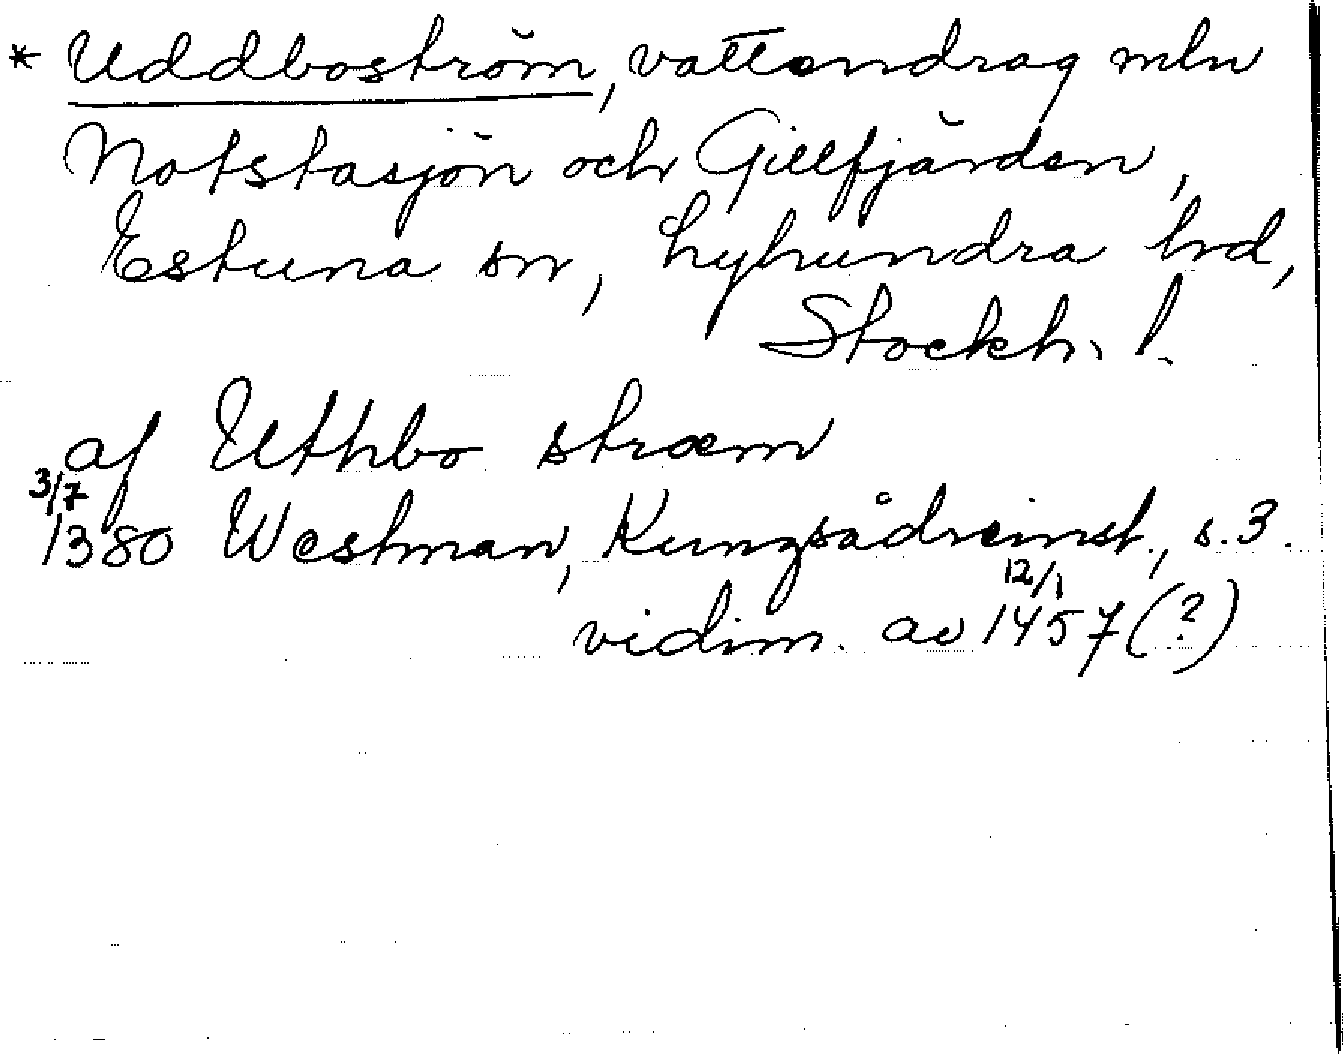 * Uddboström, vattendrag mln
Notstasjön och Gillfjärden,
Estuna sn, Lyhundra hd,
Stockh. l.
af Uthbo strøm
3/7
1380 Westman, Kungsådreinst., s. 3.
12/1
vidim. av 1457 (?)